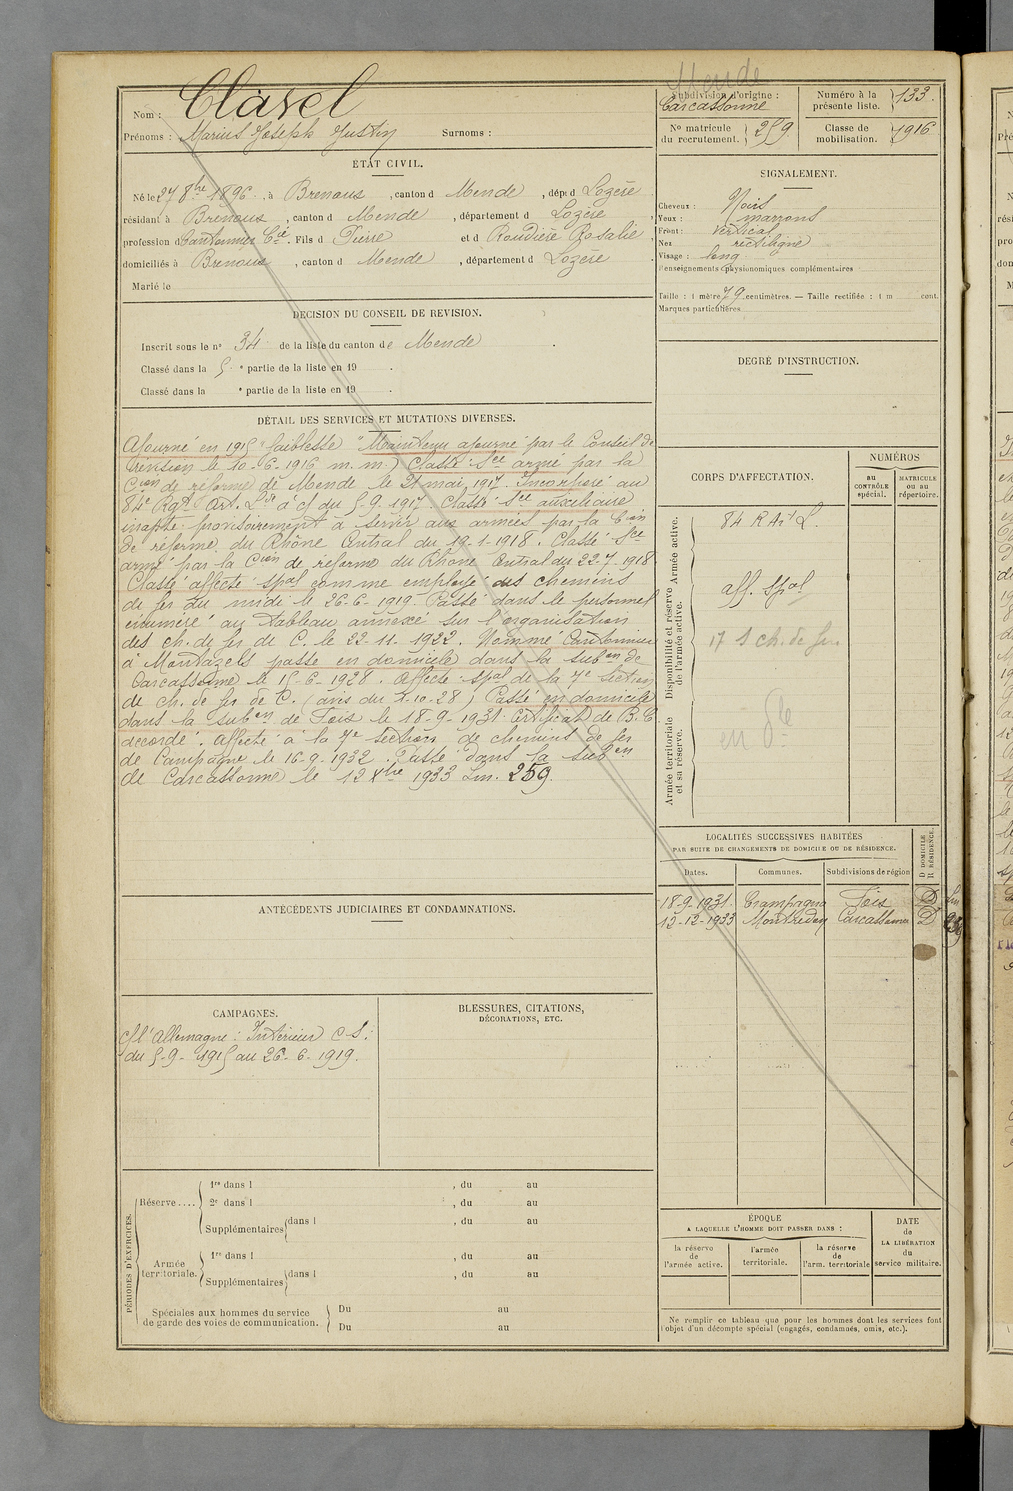 Nom : Clavel
Prénoms : Marius Joseph Justin Surnoms :
ÉTAT CIVIL.
Né le 27 8bre 1896, à Brenoux, canton d Mende, dép. d Lozère
résidant à Brenoux, canton d Mende, département d Lozère
profession d Cantonnier Cie. Fils d Pierre et d Roudière Rosalie
domiciliés à Brenoux, canton d Mende, département d Lozère
Marié le
DÉCISION DU CONSEIL DE REVISION.
Inscrit sous le no 34 de la liste du canton de Mende
Classé dans la 5 e partie de la liste en 19 .
Classé dans la e partie de la liste en 19 .
DÉTAIL DES SERVICES ET MUTATIONS DIVERSES.
Ajourné en 1915 "faiblesse" Maintenu ajourné par le Conseil de
revision le 10-6-1916 m.m.) Classé Sce armé par la
Cion de réforme de Mende le 21 mai 1917. Incorporé au
84e Rgt Art. Lde à c/ du 5-9-1917. Classé Sce auxiliaire
inapte provisoirement à servir aux armées par la Cion
de réforme du Rhône Central du 19-1-1918. Classé Sce
armé par la Cion de réforme du Rhône Central du 22-7-1918
Classé affecté spal comme employé des chemins
de fer du midi le 26-6-1919. Passé dans le personnel
énuméré au tableau annexe sur l'organisation
des ch. de fer de C. le 22-11-1922. Nommé Cantonnier
à Montazels passé en domicile dans la subon de
Carcassonne le 15-6-1928. Affecté spal de la 7e section
de ch. de fer de C. (avis du 1-10-28) Passé en domicile
dans la subon de Foix le 18-9-1931. Certificat de B. C.
accordé. Affecté à la 7e section de chemins de fer
de Campagne le 16-9-1932. Passé dans la subon
de Carcassonne le 12 Xbre 1933 Lm. 259.
ANTÉCÉDENTS JUDICIAIRES ET CONDAMNATIONS.
CAMPAGNES.
C/ l'Allemagne : Intérieur C S :
du 5-9-1915 au 26-6-1919.
BLESSURES, CITATIONS,
DÉCORATIONS, ETC.
PÉRIODES D'EXERCICES.
Réserve .... 1re dans l , du au
2e dans l , du au
Supplémentaires dans l , du au
Armée territoriale. 1re dans l , du au
Supplémentaires dans l , du au
Spéciales aux hommes du service
de garde des voies de communication. Du au
Du au
Mende
Subdivision d'origine :
Carcassonne
Numéro à la présente liste. 133.
No matricule du recrutement. 259
Classe de mobilisation. 1916
SIGNALEMENT.
Cheveux : Noirs
Yeux : marrons
Front : vertical
Nez rectiligne
Visage : long
Renseignements physionomiques complémentaires
Taille : 1 mètre 79 centimètres. — Taille rectifiée : 1 m cent.
Marques particulières
DEGRÉ D'INSTRUCTION.
CORPS D'AFFECTATION.
NUMÉROS
au CONTRÔLE spécial.
MATRICULE ou au répertoire.
Armée active.
84 R Aie L.
Disponibilité et réserve de l'armée active.
aff. Spal
17 S ch. de fer.
Armée territoriale et sa réserve.
en Dle
LOCALITÉS SUCCESSIVES HABITÉES
PAR SUITE DE CHANGEMENTS DE DOMICILE OU DE RÉSIDENCE.
D DOMICILE
R RÉSIDENCE.
Dates. Communes. Subdivisions de région
18-9-1931. Campagna Foix D Lm
12-12-1933 Montredon Carcassonne D 259
ÉPOQUE
A LAQUELLE L'HOMME DOIT PASSER DANS :
la réserve de l'armée active.
l'armée territoriale.
la réserve de l'arm. territoriale
DATE de LA LIBÉRATION du service militaire.
Ne remplir ce tableau que pour les hommes dont les services font
l'objet d'un décompte spécial (engagés, condamnés, omis, etc.).